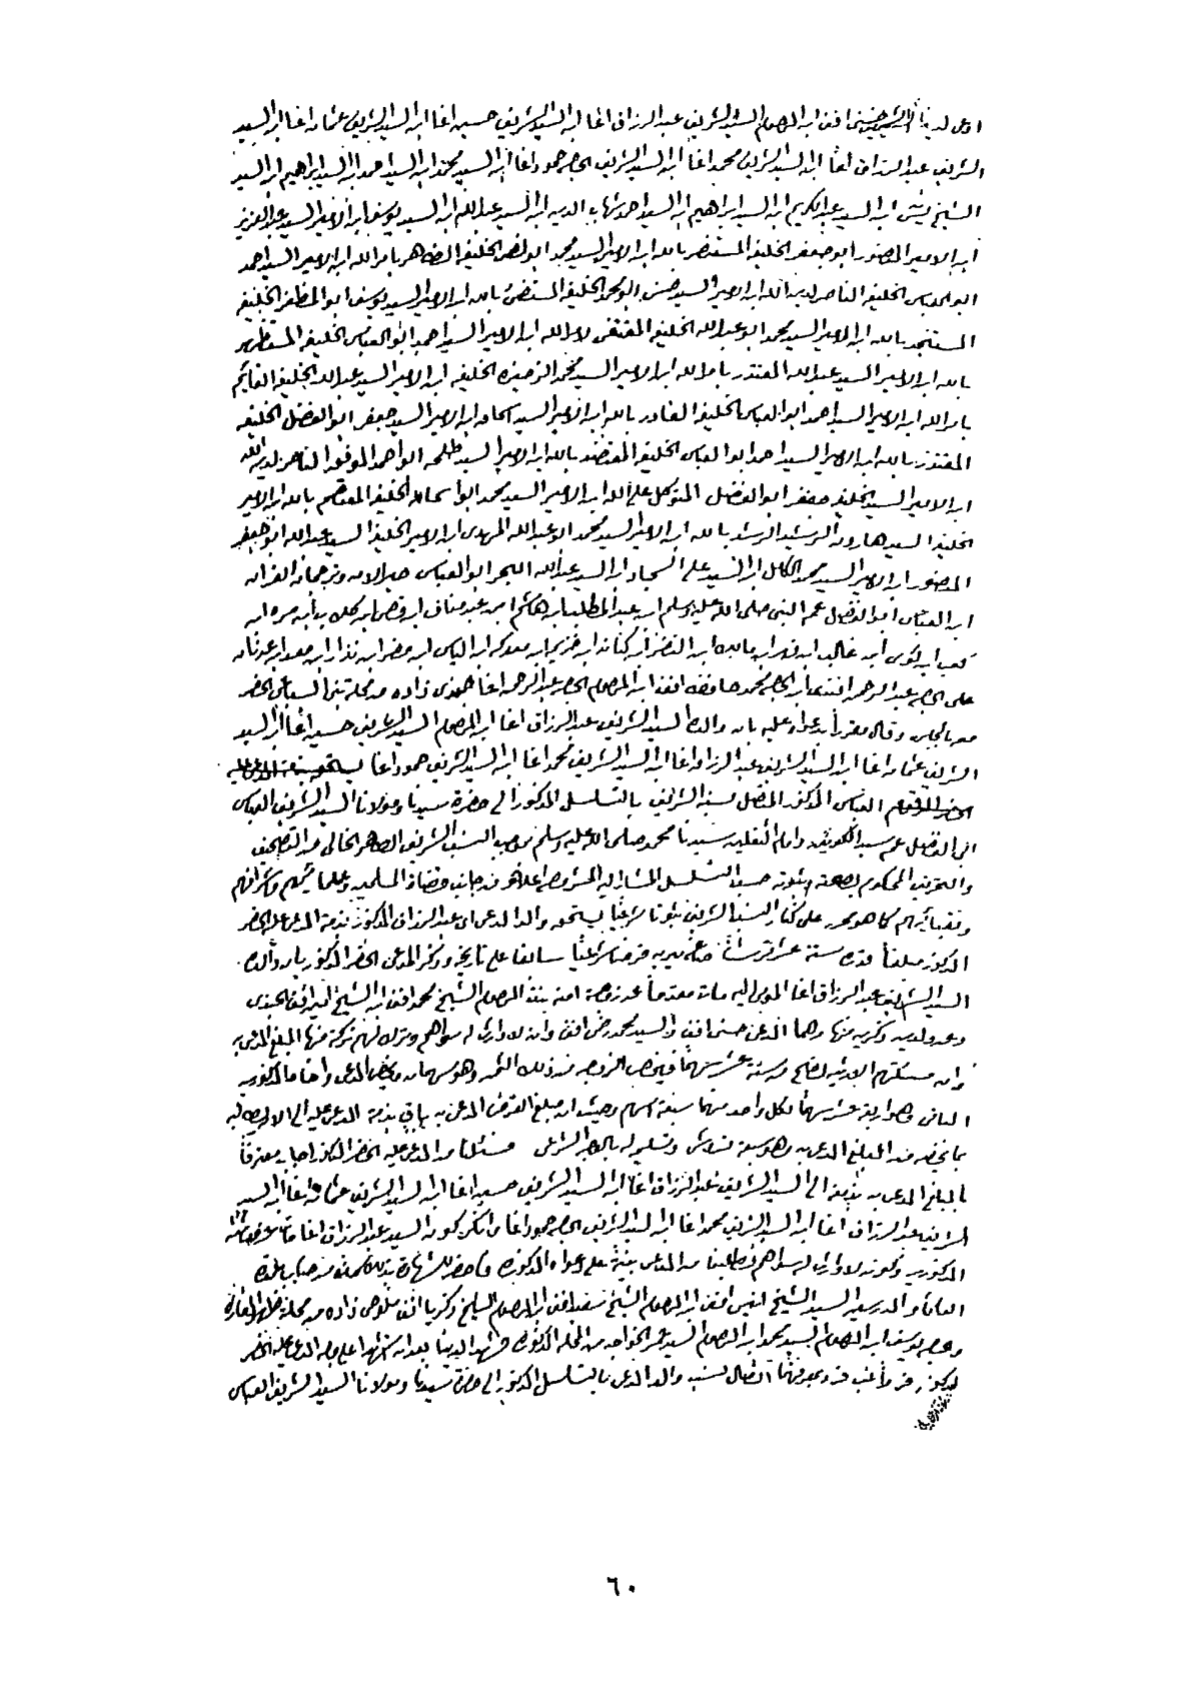 ادعى لدينا السيد الشيخ حسني افندي ابن المرحوم السيد الشريف عبد الرزاق اغا ابن السيد الشريف حسين اغا ابن السيد الشريف عثمان اغا ابن السيد
الشريف عبد الرزاق اغا ابن السيد الشريف محمد اغا ابن السيد الشريف الحاج حمود اغا ابن السيد محمد ابن السيد احمد ابن السيد ابراهيم ابن السيد
الشيخ ابن السيد عبد الكريم ابن السيد ابراهيم ابن السيد احمد شهاب الدين ابن السيد عبد الله ابن السيد يوسف ابن الامير السيد عبد العزيز
ابن الامير المنصور ابو جعفر الخليفه المستنصر بالله ابن الامير السيد محمد ابو نصر الخليفه الظاهر بامر الله ابن الامير السيد احمد
ابو العباس الخليفه الناصر لدين الله ابن الامير السيد حسن ابو محمد الخليفه المستضئ بالله ابن الامير السيد يوسف ابو المظفر الخليفه
المستنجد بالله ابن الامير السيد محمد ابو عبد الله الخليفه المقتفي لامر الله ابن الامير السيد احمد ابو العباس الخليفه المستظهر
بالله ابن الامير السيد عبد الله المقتدر بامر الله ابن الامير السيد محمد الذخيره الخليفه ابن الامير السيد عبد الله الخليفه القائم
بامر الله ابن الامير السيد احمد ابو العباس الخليفه القادر بالله ابن الامير السيد اسحاق ابن الامير السيد جعفر ابو الفضل الخليفه
المقتدر بالله ابن الامير السيد احمد ابو العباس الخليفه المعتضد بالله ابن الامير السيد طلحه ابو احمد الموفق الناصر لدين الله
ابن الامير السيد الخليفه جعفر ابو الفضل المتوكل على الله ابن الامير السيد محمد ابو اسحاق الخليفه المعتصم بالله ابن الامير
الخليفه السيد هارون الرشيد الرشد بالله ابن الامير السيد محمد ابو عبد الله المهدي ابن الامير الخليفه السيد عبد الله ابو جعفر
المنصور ابن الامير السيد محمد الكامل ابن السيد علي السجاد ابن السيد عبد الله البحر ابو العباس حبر الامه وترجمان القران
ابن العباس ابو الفضل عم النبي صلى الله عليه وسلم ابن عبد المطلب ابن هاشم ابن عبد مناف ابن قصي ابن كلاب ابن مره ابن
كعب ابن لؤي ابن غالب ابن فهر ابن مالك ابن النضر ابن كنانه ابن خزيمه ابن مدركه ابن الياس ابن مضر ابن نذار ابن معد ابن عدنان
على الحاج عبد الرحمن افندي ابن الحاج محمد حافظ افندي ابن المرحوم الحاج عبد الرحمن اغا زاده من محلة الحاضر
معه بالمجلس وقال مقررا بدعواه عليه بان والده السيد الشريف عبد الرزاق اغا ابن المرحوم السيد الشريف حسين اغا ابن السيد
الشريف عثمان اغا ابن السيد الشريف عبد الرزاق اغا ابن السيد الشريف محمد اغا ابن السيد الشريف حمود اغا
العباسي المذكور المتصل نسبه الشريف بالتسلسل المذكور الى حضرة سيدنا ومولانا السيد الشريف العباس
ابي الفضل عم سيد الكونين وامام الثقلين سيدنا محمد صلى الله عليه وسلم بموجب النسب الشريف الطاهر الخالي من التصحيف
والتحريف المحكوم بصحته وثبوته حسب التسلسل المشار اليه المشروح اعلاه من جانب قضاة المسلمين وعلمائهم واشرافهم
ونقبائهم كما هو محرر على كتاب النسب الشريف ثبوتا شرعيا يستحق والد المدعي اي عبد الرزاق المذكور بذمة المدعى عليه الحاضر
المذكور مبلغا قدره ستة عشر قرضا شرعيا سابقا على تاريخه وذكر المدعي الحاضر المذكور بان والده
السيد الشريف عبد الرزاق اغا المومى اليه مات مقدما عن زوجته امنه بنت المرحوم الشيخ محمد افندي ابن الشيخ
وعن ولدين ذكرين منها وهما المدعي حسني افندي والسيد محمد افندي وان لا وارث له سواهم وترك لهم تركة منها المبلغ المدعى به
وان مسئلتهم الارثيه تصح من ستة عشر سهما فيخص الزوجه من ذلك الثمن وهو سهمان ويخص المدعي واخاه المذكورين
الباقي وهو اربعة عشر سهما لكل واحد منهما سبعة اسهم وحيث ان مبلغ القرض المدعى به باقي بذمة المدعى عليه الى الان
بما يخصه من المبلغ المدعى به وهو سبعة وتسليمه له بالوجه الشرعي فسئل من المدعى عليه الحاضر المذكور اجاب معترفا
بالمبلغ المدعى به الى السيد الشريف عبد الرزاق اغا ابن السيد الشريف حسين اغا ابن السيد الشريف عثمان اغا ابن السيد
الشريف عبد الرزاق اغا ابن السيد الشريف محمد اغا ابن السيد الشريف الحاج حمود اغا وانكر كون السيد عبد الرزاق اغا مات عن
المذكورين وكونه لا وارث له سواهم فطلبنا من المدعي بينة على دعواه المذكوره فاحضر للشهادة
العلماء والمدرسين السيد الشيخ انيس افندي ابن المرحوم الشيخ افندي ابن المرحوم الشيخ زكريا افندي زاده من محلة
والحاج يوسف ابن المرحوم السيد محمد ابن المرحوم السيد عمر الخواجه من المحله المذكوره فشهد لدينا بعد ان استشهدا على وجه المدعى عليه الحاضر
المذكور فردا غب فرد بمعرفتهما اتصال نسب والد المدعي بالتسلسل المذكور الى حضرة سيدنا ومولانا السيد الشريف العباس
٦٠